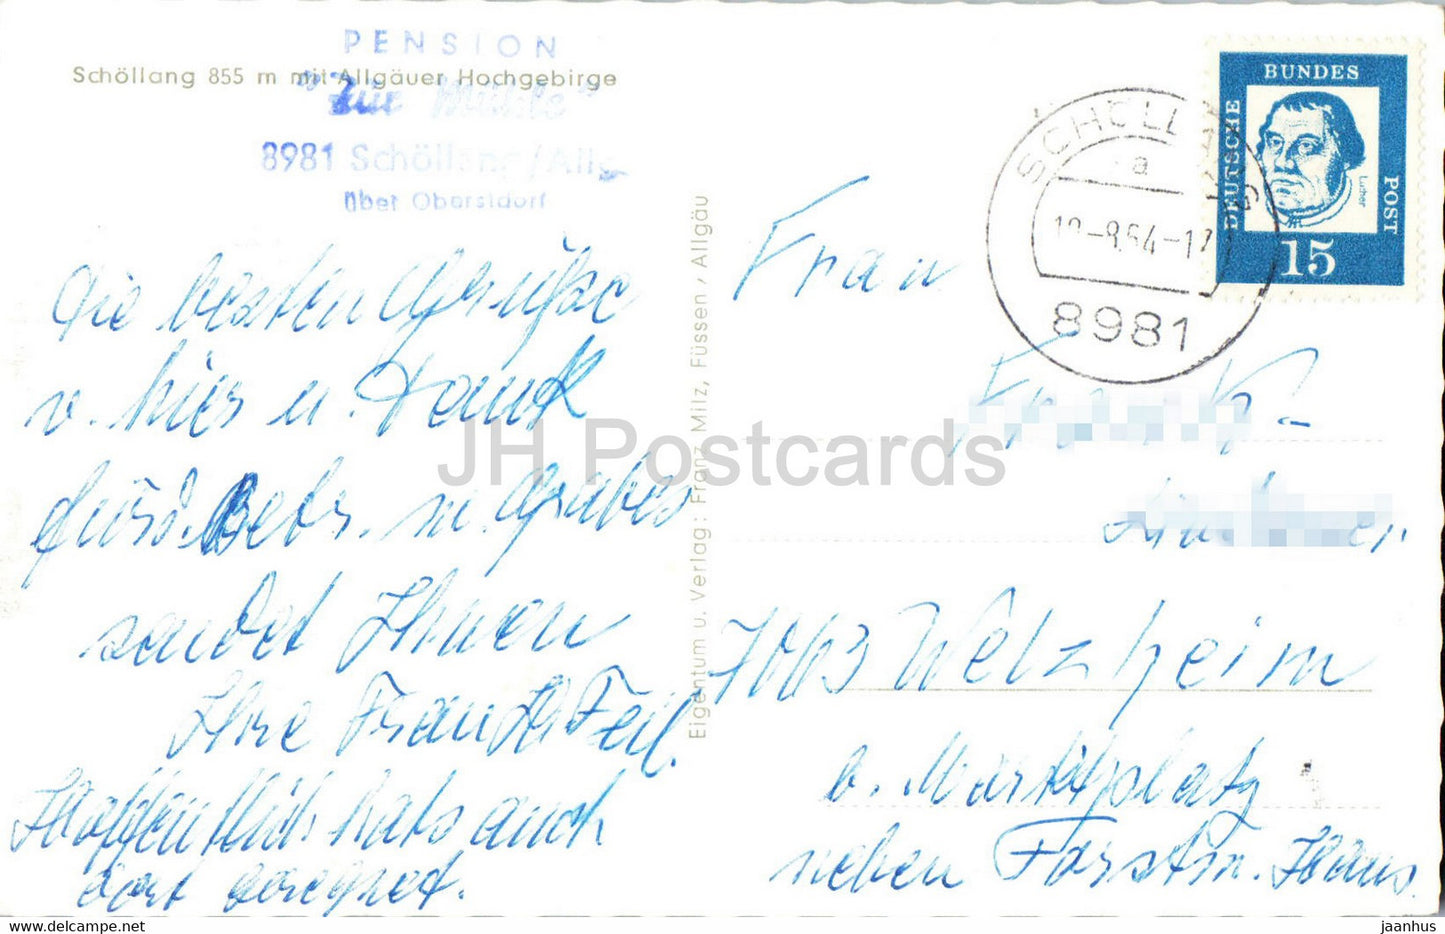 PENSION
Schöllang 855 m mit Allgäuer Hochgebirge
"Zur Mühle"
8981 Schöllang/Allg.
über Oberstdorf
Die besten Grüße
v. hier u. Dank
fürs. Betr. m. Grabes
sendet Ihnen
Ihre Frau H Feil.
Hoffentlich hats auch
dort geregnet.
Eigentum u. Verlag: Franz Milz, Füssen / Allgäu
SCHÖLLANG
a
8.64-1
8981
DEUTSCHE BUNDES POST
Luther
15
Frau
7063 Welzheim
b. Marktplatz
neben Forstm. Haus.
JH Postcards
hipstamp.com/store/jhpostcards
jaanhus